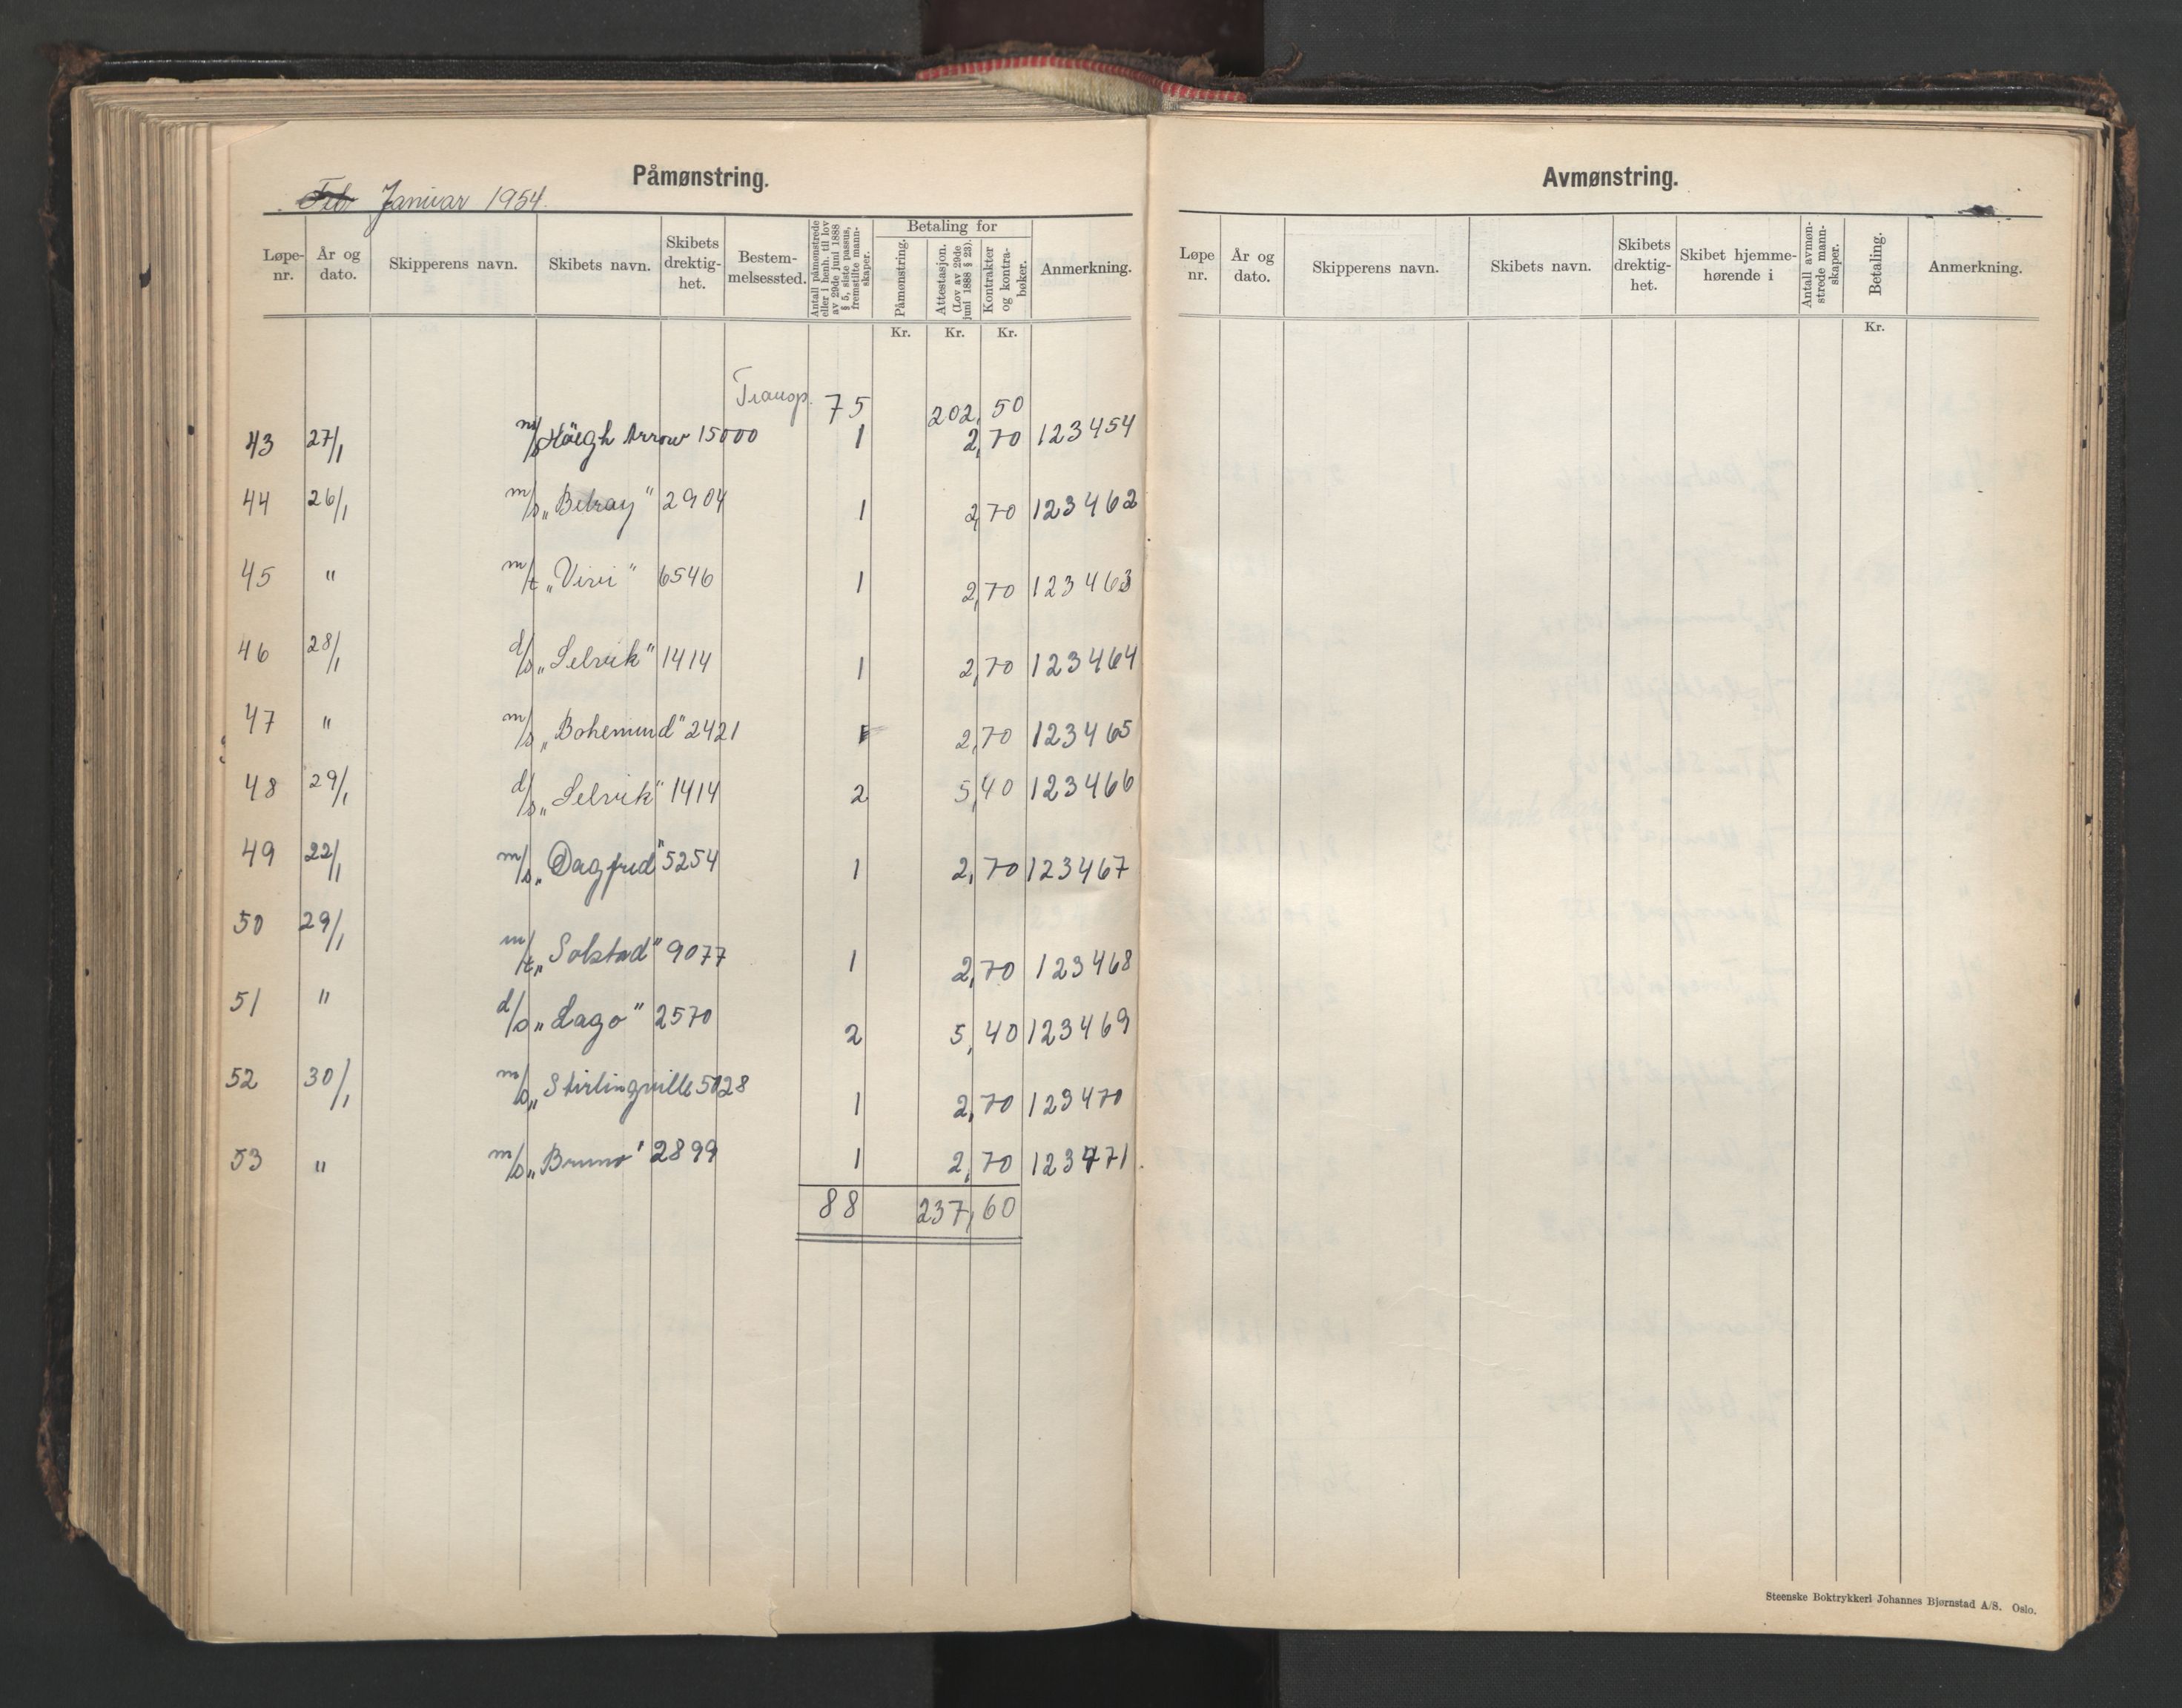 Påmønstring.
Feb Januar 1954.
Løpe-nr. År og dato. Skipperens navn. Skibets navn. Skibets drektig-het. Bestem-melsessted. Antall påmønstrede eller i henh. til lov av 29de juni 1888 § 5, siste passus, fremstilte mann-skaper. Betaling for Påmønstring. Attestasjon. (Lov av 29de juni 1888 § 23). Kontrakter og kontra-bøker. Anmerkning.
Kr. Kr. Kr.
Transp. 75 202,50
43 27/1 m/s Höegh Arrow 15000 1 2,70 123454
44 26/1 m/s „Belray" 2904 1 2,70 123462
45 " m/t „Vivi" 6546 1 2,70 123463
46 28/1 d/s „Selvik" 1414 1 2,70 123464
47 " m/s „Bohemund" 2421 1 2,70 123465
48 29/1 d/s „Selvik" 1414 2 5,40 123466
49 22/1 m/s „Dagfred" 5254 1 2,70 123467
50 29/1 m/t „Solstad" 9077 1 2,70 123468
51 " d/s „Lago" 2570 2 5,40 123469
52 30/1 m/s „Stirlingville 5028 1 2,70 123470
53 " m/s „Bruno" 2899 1 2,70 123471
88 237,60
Avmønstring.
Løpe nr. År og dato. Skipperens navn. Skibets navn. Skibets drektig-het. Skibet hjemme-hørende i Antall avmøn-strede mann-skaper. Betaling. Anmerkning.
Kr.
Steenske Boktrykkeri Johannes Bjørnstad A/S. Oslo.